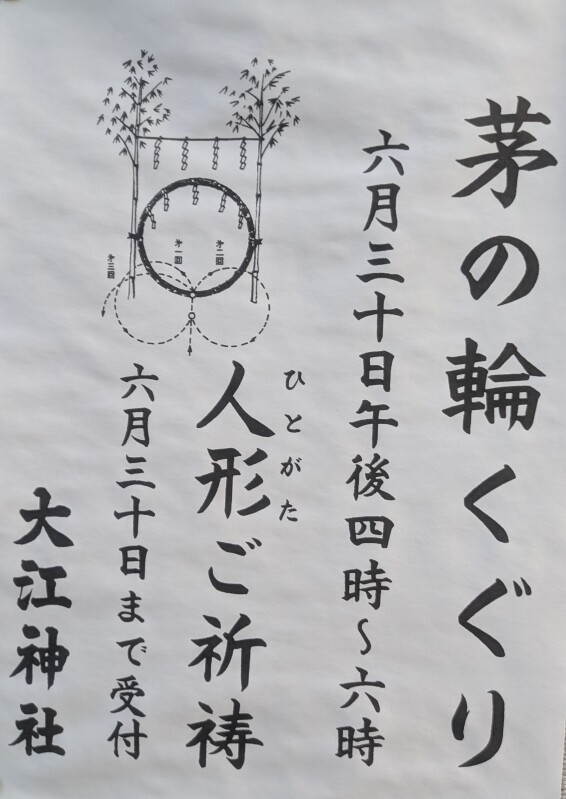 茅の輪くぐり
六月三十日午後四時～六時
ひとがた
人形ご祈祷
六月三十日まで受付
大江神社
第二回
第一回
第三回